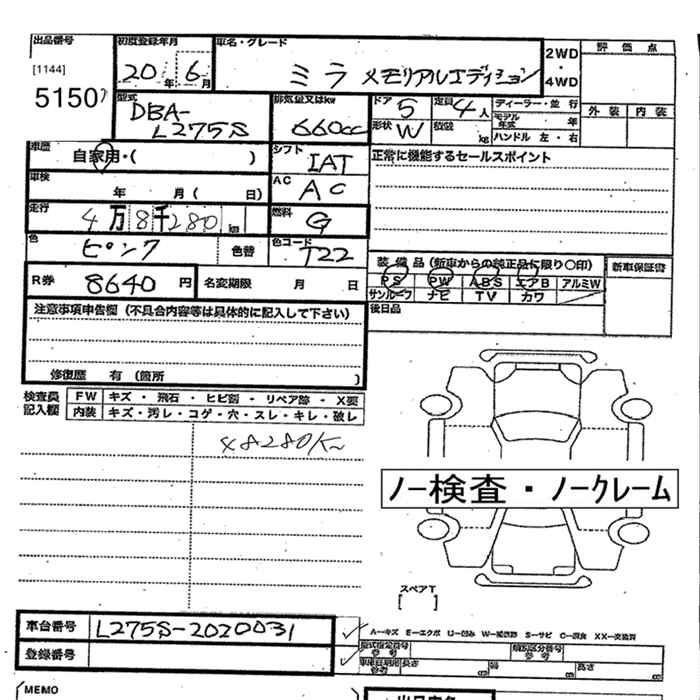 出品番号
[1144]
5150
初度登録年月
20年 6月
車名・グレード
ミラ メモリアルエディション
2WD
・
4WD
評価点
外装 内装
型式
DBA-
L275S
排気量又はkw
660cc
ドア 5 定員 4人
形状 W 積載 kg
ディーラー・並行
モデル年式 年
ハンドル 左・右
車歴
自家用・( )
シフト
IAT
正常に機能するセールスポイント
車検
年 月( 日)
AC
AC
走行
4万8千280km
燃料
G
色
ピンク
色替
色コード
T22
装備品(新車からの純正品に限り○印)
新車保証書
PS PW ABS エアB アルミW
サンルーフ ナビ TV カワ
R券 8640円
名変期限 月 日
後日品
注意事項申告欄(不具合内容等は具体的に記入して下さい)
修復歴 有(箇所 )
検査員
記入欄
FW キズ・飛石・ヒビ割・リペア跡・X要
内装 キズ・汚レ・コゲ・穴・スレ・キレ・破レ
48280K
ノー検査・ノークレーム
スペアT
[ ]
車台番号 L275S-2020031
A―キズ E―エクボ U―凹み S―サビ C―腐食 XX―交換済
登録番号
型式指定番号
参考
類別区分番号
参考
車庫証明用
参考
長さ cm 幅 cm 高さ cm
MEMO
出品店名